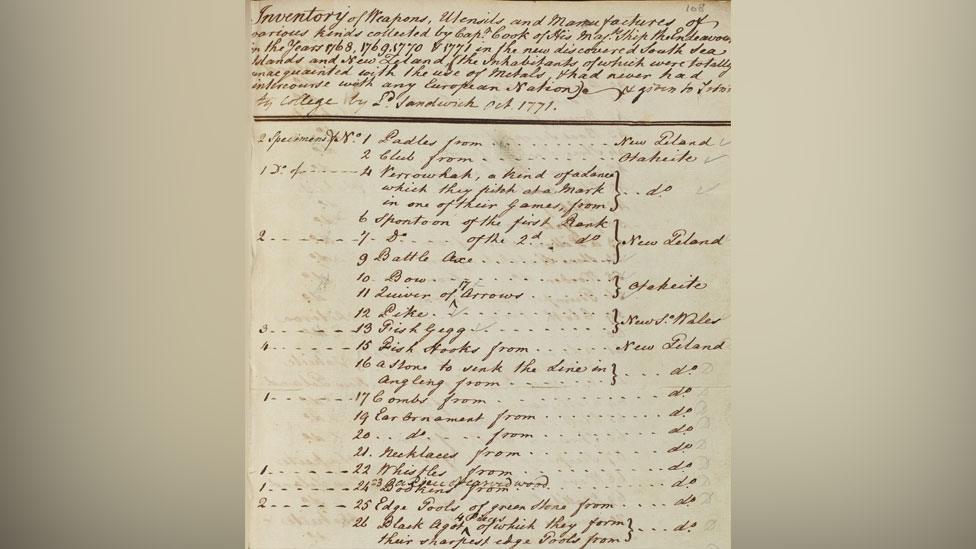 108
Inventory of Weapons, Utensils, and Manufactures, of
various kinds collected by Capt. Cook of His Maj.s Ship the Endeavour
in the Years 1768, 1769, 1770 & 1771 in the new discovered South Sea
Islands and New Zeland (the Inhabitants of which were totally
unacquainted with the use of Metals, & had never had
intercourse with any European Nation) & given to Trini
ty College by Ld. Sandwich Oct. 1771.
2 Specimens of No. 1 Padles from New Zeland
2 Club from Otaheite
1 Do. of 4 Verrowhah, a kind of
which they pitch at a Mark } do
in one of their Games, from
6 Spontoon of the first Rank
2 7 Do of the 2d do } New Zeland
9 Battle Axe
10 Bow
11 Quiver of 17 Arrows } Otaheite
12 Pike
3 13 Fish Gegg } New So. Wales
4 15 Fish Hooks from New Zeland
16 a Stone to sink the Line in
Angling from } do
1 17 Combs from do
19 Ear Ornament from do
20 do from do
21 Necklaces from do
1 22 Whistles from do
23 a piece of carved wood
1 24 Bodkins from do
2 25 Edge Tools of green stone from do
26 Black Agot 4 Pieces of which they form
their sharpest edge Tools from } do